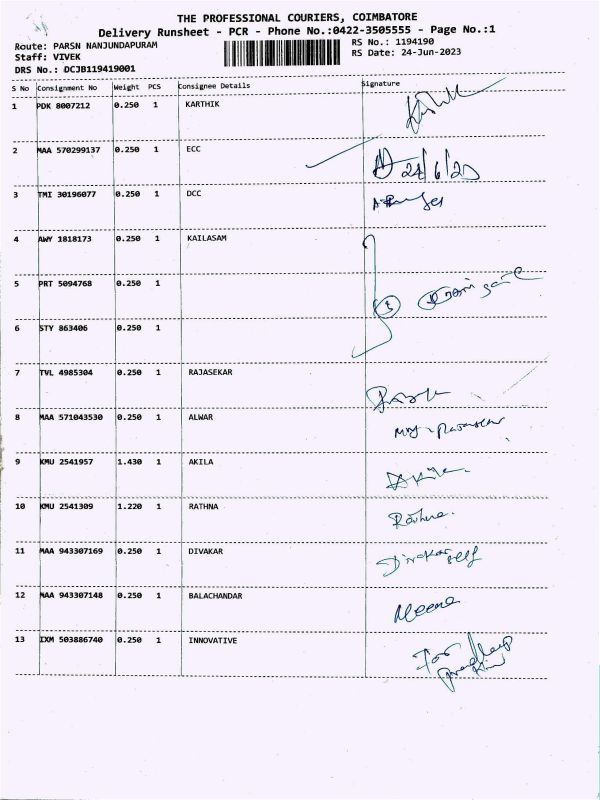 THE PROFESSIONAL COURIERS, COIMBATORE
Delivery Runsheet - PCR - Phone No.:0422-3505555 - Page No.:1
Route: PARSN NANJUNDAPURAM RS No.: 1194190
Staff: VIVEK RS Date: 24-Jun-2023
DRS No.: DCJB119419001
S No Consignment No Weight PCS Consignee Details Signature
1 PDK 8007212 0.250 1 KARTHIK
2 MAA 570299137 0.250 1 ECC 24/6/23
3 TMI 30196077 0.250 1 DCC
4 AWY 1818173 0.250 1 KAILASAM
5 PRT 5094768 0.250 1
6 STY 863406 0.250 1
7 TVL 4985304 0.250 1 RAJASEKAR
8 MAA 571043530 0.250 1 ALWAR
9 KMU 2541957 1.430 1 AKILA Akila
10 KMU 2541309 1.220 1 RATHNA Rathna.
11 MAA 943307169 0.250 1 DIVAKAR Divakar self
12 MAA 943307148 0.250 1 BALACHANDAR Meena
13 IXM 503886740 0.250 1 INNOVATIVE